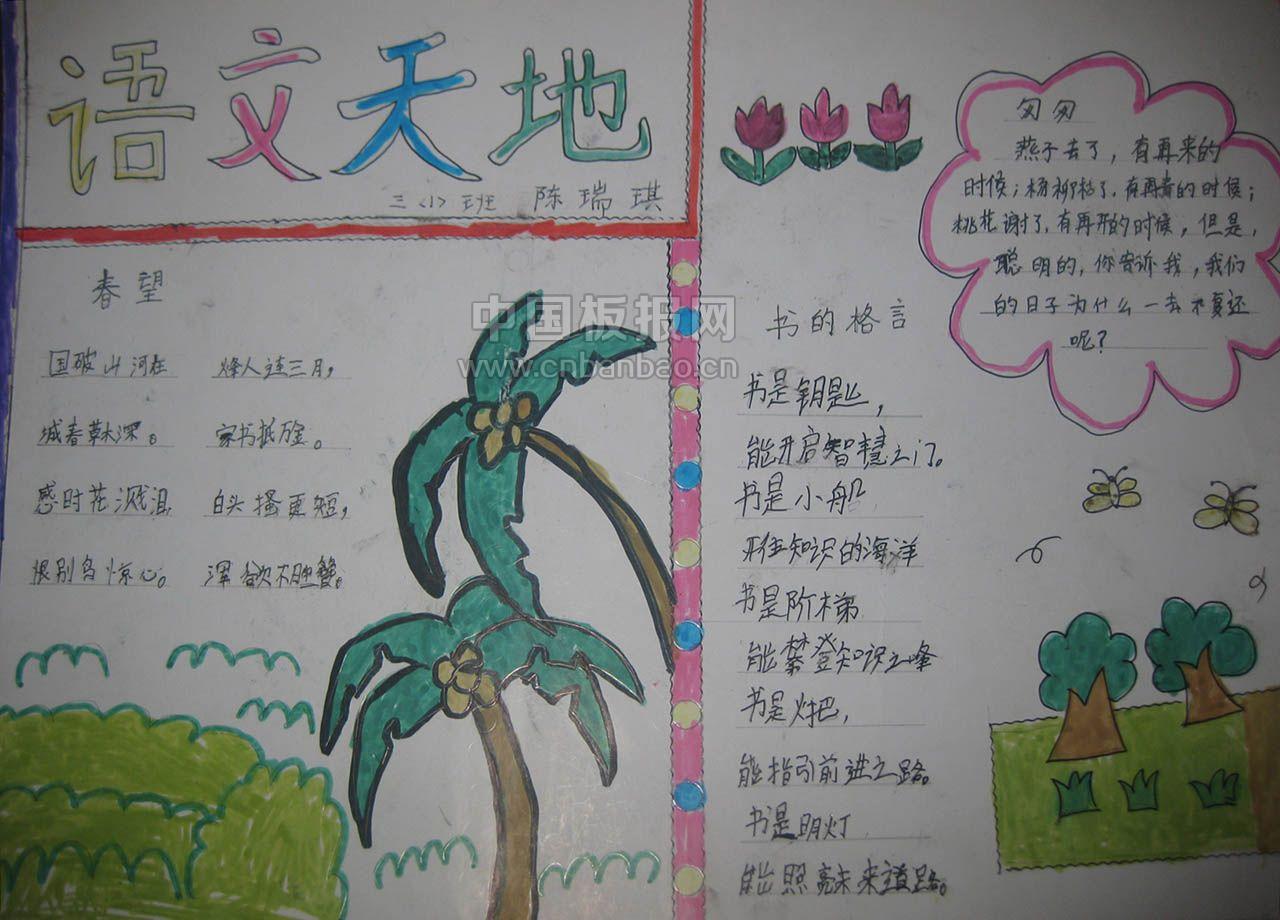 语文天地
三〈1〉班 陈瑞琪
春望
国破山河在 烽人连三月，
城春草木深。 家书抵万金。
感时花溅泪， 白头搔更短，
恨别鸟惊心。 浑欲不胜簪。
中国板报网
www.cnbanbao.cn
书的格言
书是钥匙，
能开启智慧之门。
书是小船
开往知识的海洋
书是阶梯
能攀登知识之峰
书是火把，
能指引前进之路。
书是明灯
能照亮未来道路。
匆匆
燕子去了，有再来的
时候；杨柳枯了，有再青的时候；
桃花谢了，有再开的时候，但是，
聪明的，你告诉我，我们
的日子为什么一去不复还
呢？